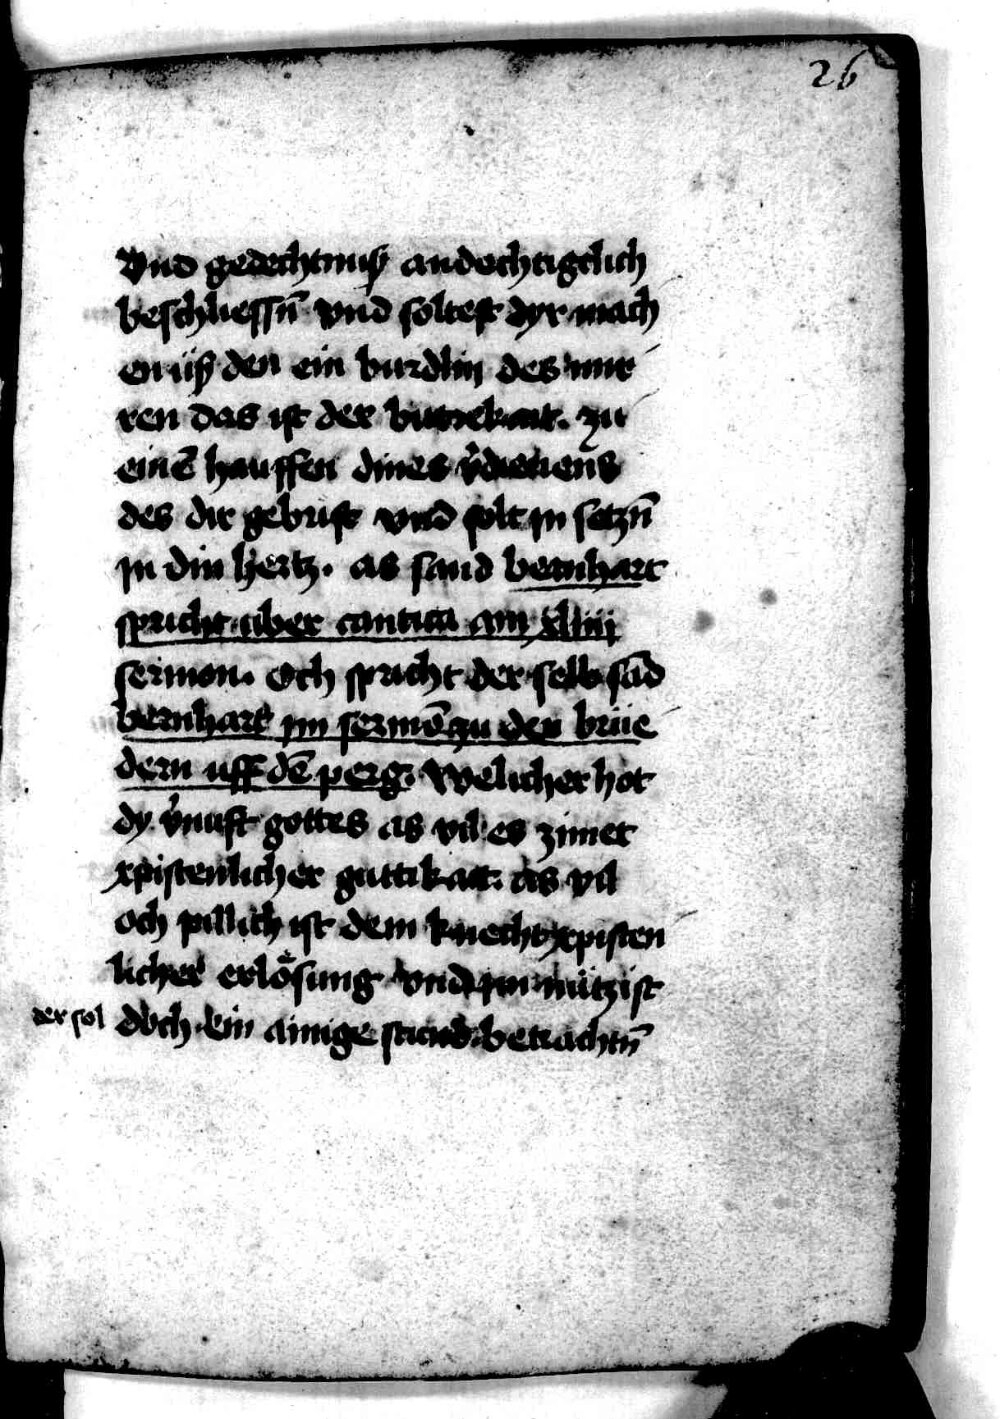 26
Vnd gedechtnuß andechtigclich
beschliessn̄ vnd soltest dyr mach
en uß den ein burdlin des mir
ren das ist der bitrekait. zu
einē hauffen dines v̓dienens
des dir gebrist vnd solt jn setzn̄
jn din hertz. as sand bernhart
spricht uber cantica am xliiij
sermon. Och spricht der selb sād
bernhart jm sermō zu den brüe
dern uff dē perg. Welicher hot
dy v̓nuft gottes as vil es zimet
xpistenlicher guttikait. as vil
och pillich ist dem knecht xpisten
licher erlösung vnd jm nütz ist
der sol doch ein ainige stund betrachtn̄